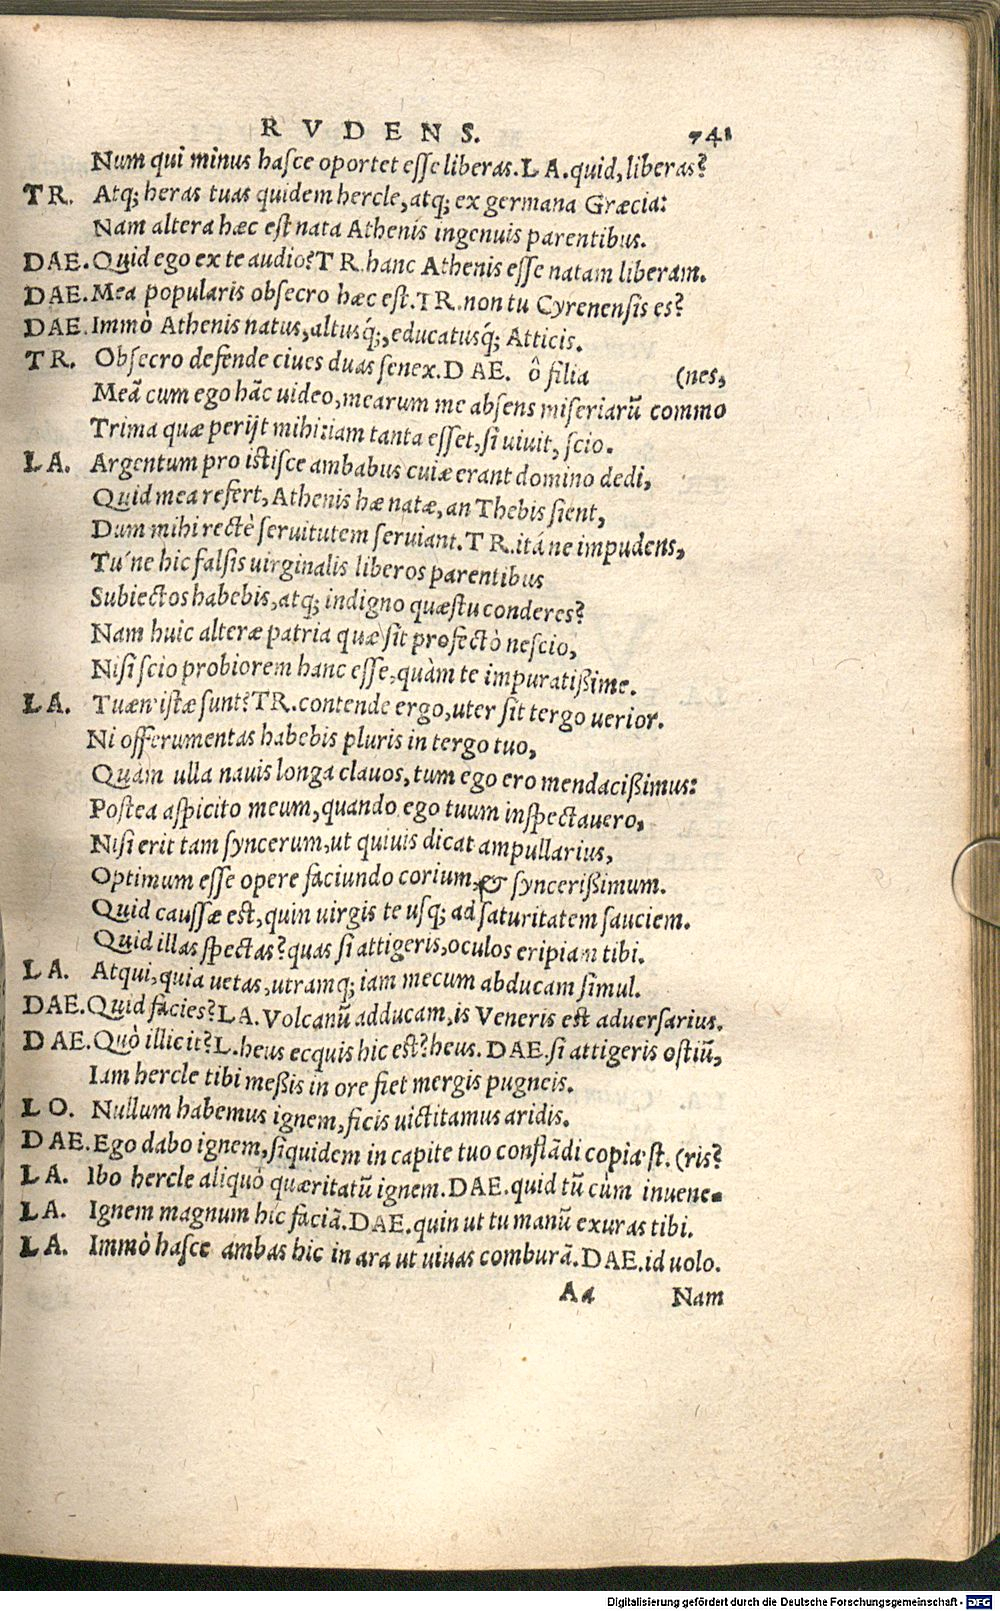 RVDENS. 741
Num qui minus hasce oportet esse liberas. LA. quid, liberas?
TR. Atq; heras tuas quidem hercle, atq; ex germana Græcia:
Nam altera hæc est nata Athenis ingenuis parentibus.
DAE. Quid ego ex te audio? TR. hanc Athenis esse natam liberam.
DAE. Mea popularis obsecro hæc est. TR. non tu Cyrenensis es?
DAE. Immò Athenis natus, altusq́;, educatusq́; Atticis.
TR. Obsecro defende ciues duas senex. DAE. ô filia (nes,
Meã cum ego hãc uideo, mearum me absens miseriarũ commo
Trima quæ perijt mihi: iam tanta esset, si uiuit, scio.
LA. Argentum pro istisce ambabus cuiæ erant domino dedi,
Quid mea refert, Athenis hæ natæ, an Thebis sient,
Dum mihi rectè seruitutem seruiant. TR. itá ne impudens,
Tú ne hic falsis uirginalis liberos parentibus
Subiectos habebis, atq; indigno quæstu conderes?
Nam huic alteræ patria quæ sit profectò nescio,
Nisi scio probiorem hanc esse, quàm te impuratißime.
LA. Tuæn' istæ sunt? TR. contende ergo, uter sit tergo uerior.
Ni offerumentas habebis pluris in tergo tuo,
Quam ulla nauis longa clauos, tum ego ero mendacißimus:
Postea aspicito meum, quando ego tuum inspectauero,
Nisi erit tam syncerum, ut quiuis dicat ampullarius,
Optimum esse opere faciundo corium, & syncerißimum.
Quid caussæ est, quin uirgis te usq; ad saturitatem sauciem.
Quid illas spectas? quas si attigeris, oculos eripiam tibi.
LA. Atqui, quia uetas, utramq; iam mecum abducam simul.
DAE. Quid facies? LA. Volcanũ adducam, is Veneris est aduersarius.
DAE. Quò illic it? L. heus ecquis hic est? heus. DAE. si attigeris ostiũ,
Iam hercle tibi meßis in ore fiet mergis pugneis.
LO. Nullum habemus ignem, ficis uictitamus aridis.
DAE. Ego dabo ignem, siquidem in capite tuo conflãdi copia'st. (ris?
LA. Ibo hercle aliquò quæritatũ ignem. DAE. quid tũ cùm inuene-
LA. Ignem magnum hic faciã. DAE. quin ut tu manũ exuras tibi.
LA. Immò hasce ambas hic in ara ut uiuas comburã. DAE. id uolo.
Aa Nam
Digitalisierung gefördert durch die Deutsche Forschungsgemeinschaft - DFG